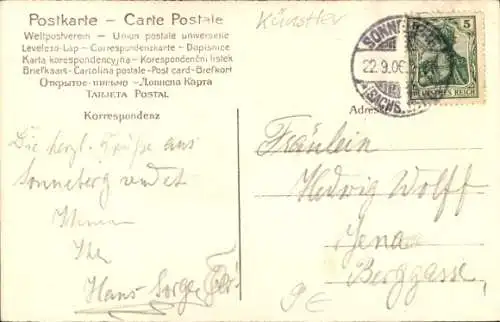 Postkarte – Carte Postale
Weltpostverein – Union postale universelle
Levelező-Lap – Correspondenzkarte – Dopisnice
Karta korespondencyjna – Korespondenční lístek
Briefkaart – Cartolina postale – Post card – Brefkort
Открытое письмо – Дописна Карта
Tarjeta Postal
Künstler
SONNEBERG
22.9.06
SACHS.
5
DEUTSCHES REICH
Korrespondenz
Die herzl. Grüße aus
Sonneberg sendet
Ihnen
Ihr
Hans Sorge
Fräulein
Hedwig Wolff
Jena
Berggasse.